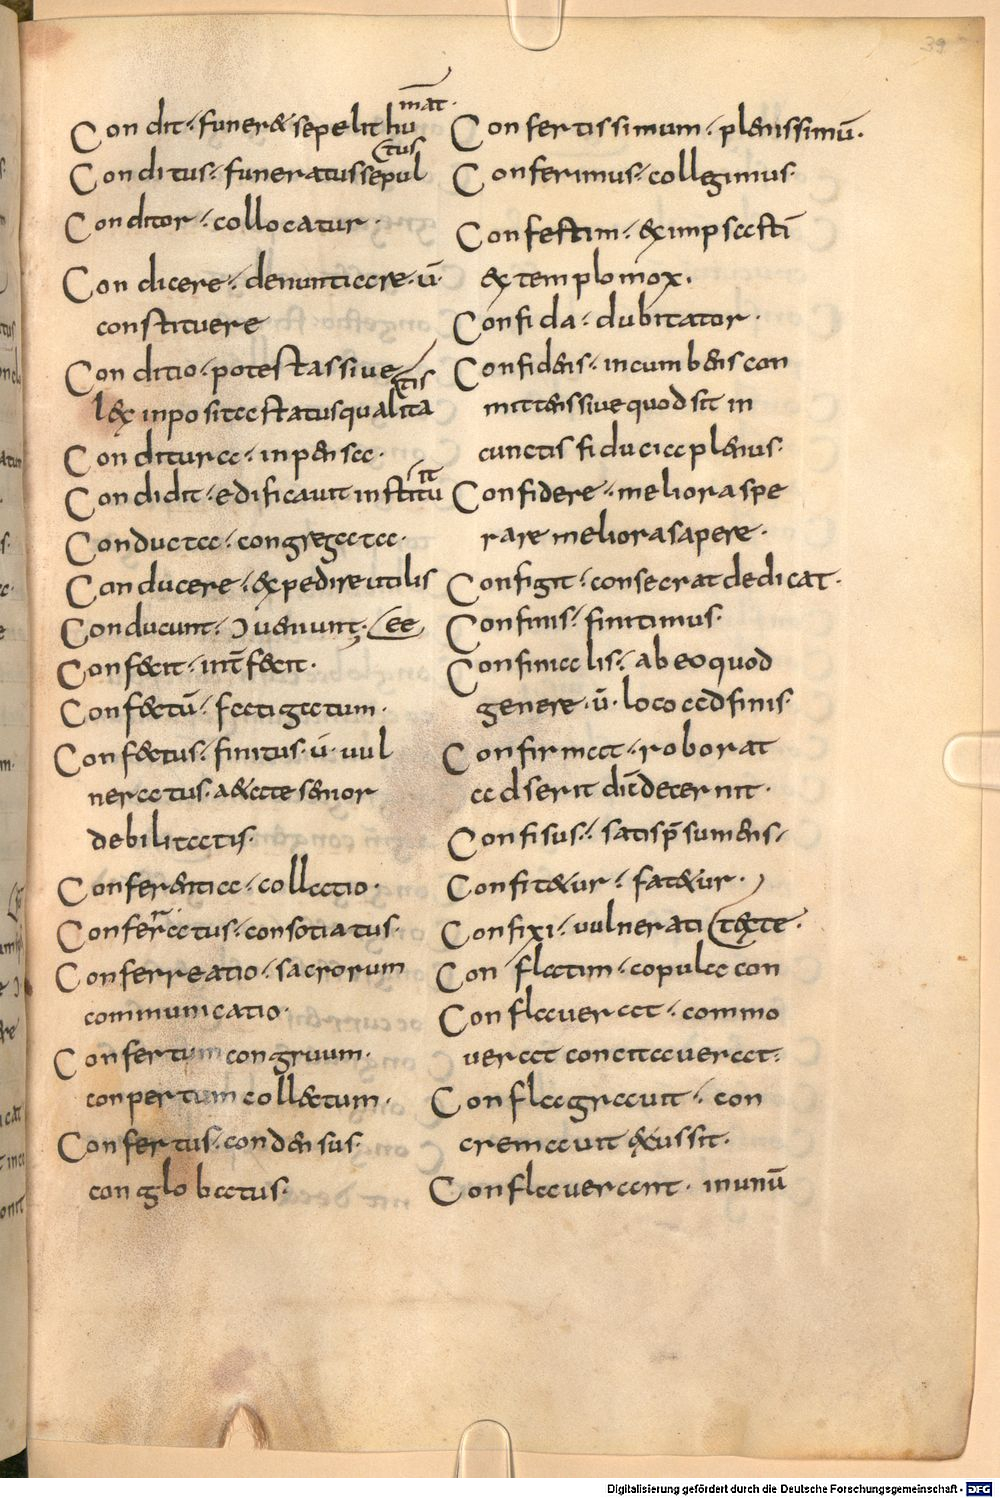 39
Condit · funer& sepelit hu
māt ·
Conditus · funeratus sepul
tus
Conditor · collocatur ·
Condicere · denuntiare · ū ·
constituere
Conditio · potestas sive
lex inposita status qualita
tis
Conditura · inpensa ·
Condidit · edificavit institu
it
Conducta · congregata ·
Conducere · expedire utilis
Conducunt · Ɔveniunt · ee
Conf&cit · int̄f&cit ·
Conf&tū · fatigatum ·
Conf&tus · finitus · ū · vul
neratus · a&ate senior
debilitatis ·
Conferentia · collatio ·
Conferratus · consotiatus ·
Conferreatio · sacrorum
communicatio ·
Confertum congruum ·
conpertum coll&tum ·
Confertus · condensus ·
conglobatus ·
Confertissimum · plenissimū ·
Conferimus · collegimus ·
Confestim · & imp sa stī
extemplo mox ·
Confida · dubitator ·
Confidens · incumbens con
mittens sive quod sit in
cunctis fiducia plenus ·
Confidere · meliora spe
rare meliora sapere ·
Configit · consecrat dedicat ·
Confinis · finitimus ·
Confinalis · ab eo quod
genere · ū · loco ad finis ·
Confirmat · roborat
adserit dīt decernit ·
Confisus · satis p̄sumens ·
Confit&ur · fat&ur ·
Confixi · vulnerati texte ·
Conflatim · copula con
Conflaverat · commo
verat concitaverat ·
Conflagravit · con
cremavit excussit ·
Conflaverant · in unū
Digitalisierung gefördert durch die Deutsche Forschungsgemeinschaft - DFG